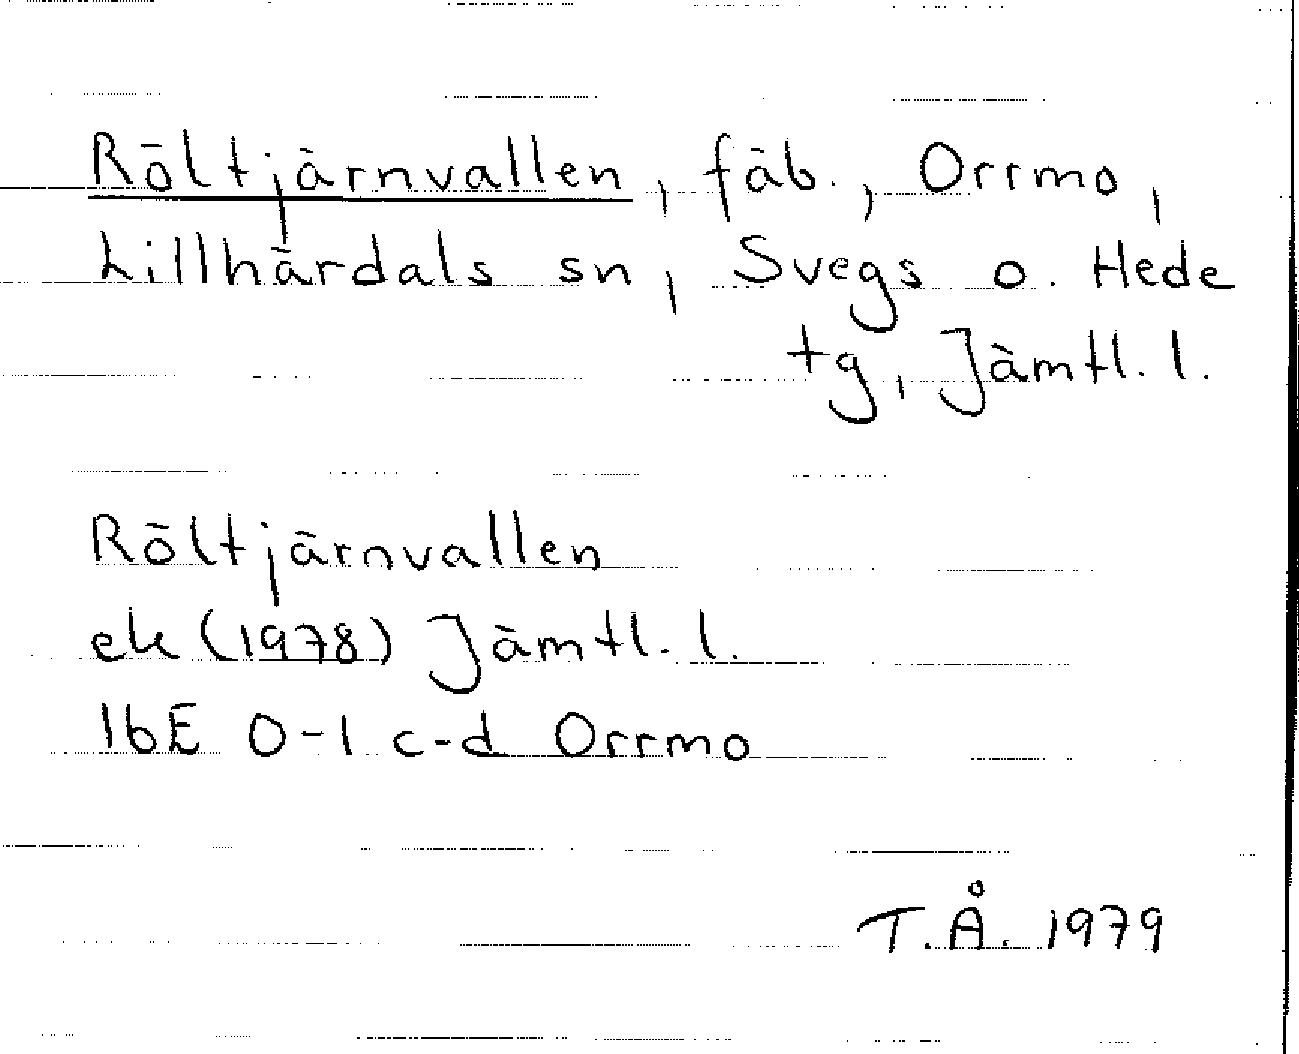 Röltjärnvallen, fäb., Orrmo,
Lillhärdals sn, Svegs o. Hede
tg, Jämtl. l.
Röltjärnvallen
ek (1978) Jämtl. l.
16E 0-1 c-d Orrmo
T.Å. 1979